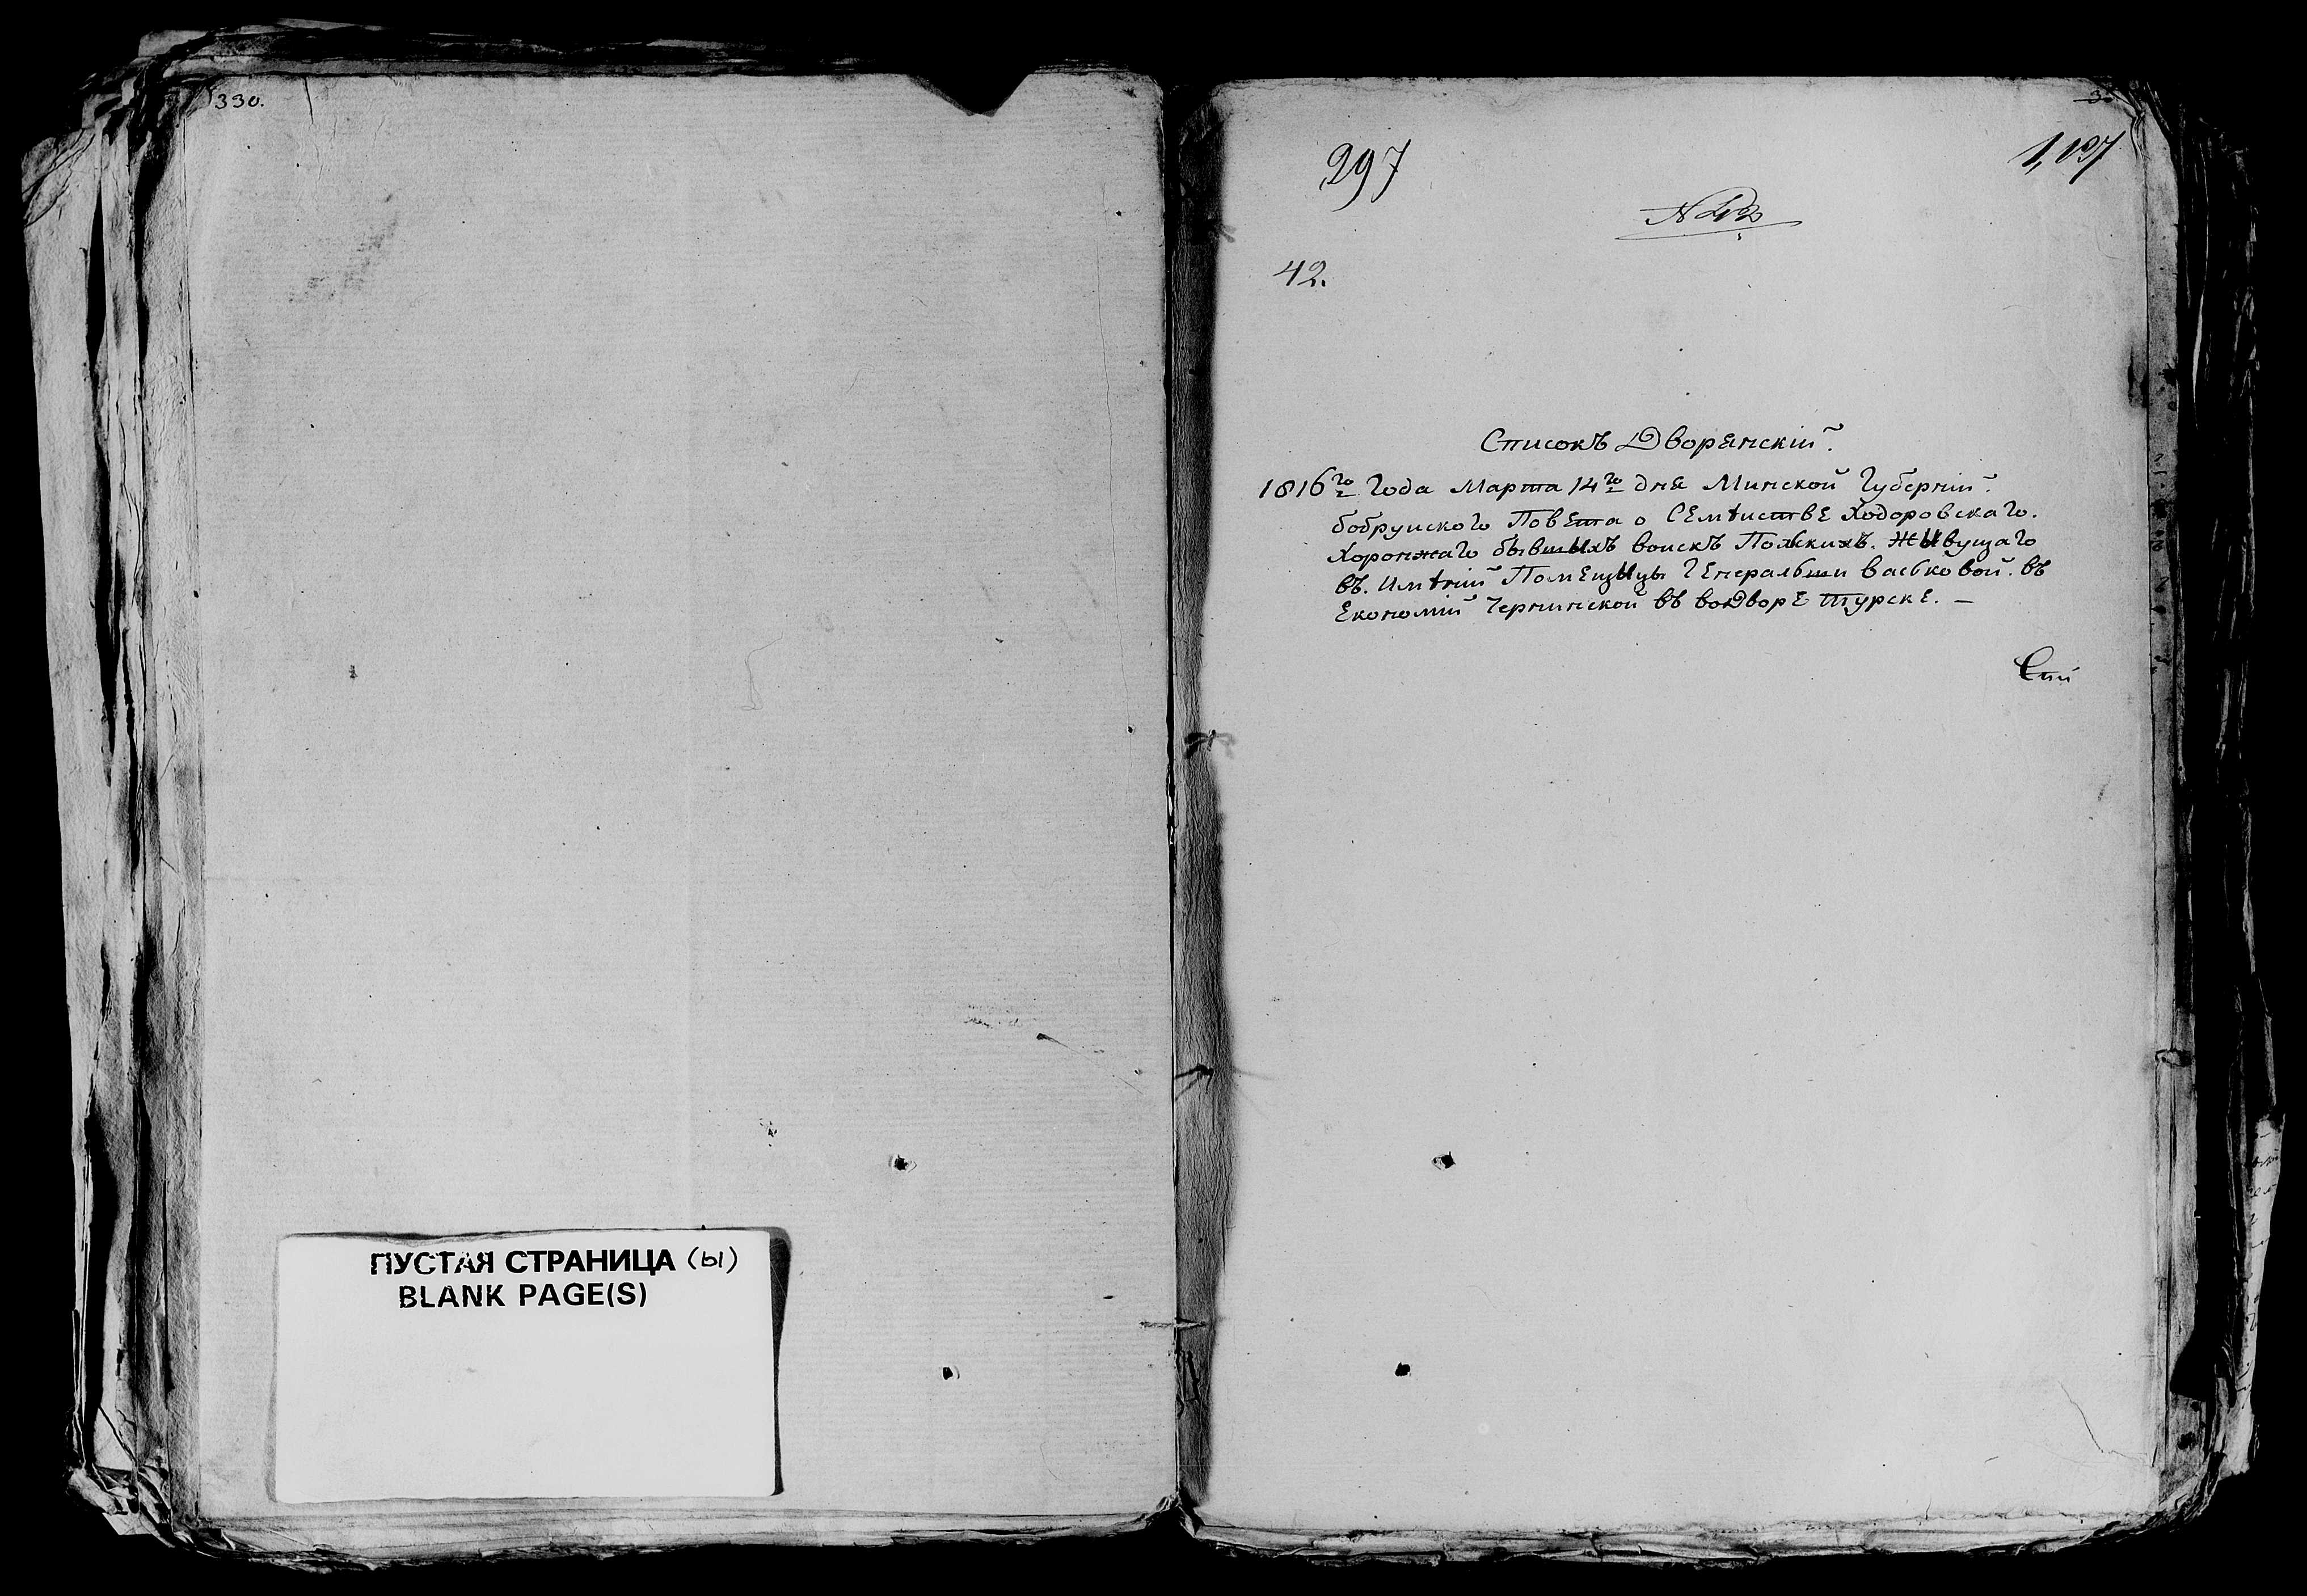 330.
ПУСТАЯ СТРАНИЦА (ы)
BLANK PAGE(S)
297
1,197
42.
Списокъ Дворянскій.
1816го года Марта 14го дня Минской Губерніи.
бобруиского Повета о Семѣистве Ходоровскаго.
Хоронжаго бывшыхъ воискъ Полскихъ. Жывущаго
въ. Имѣніи Помещыцы Генеральши Васковой. въ
Економіи Чернинской въ водворе Турске. —